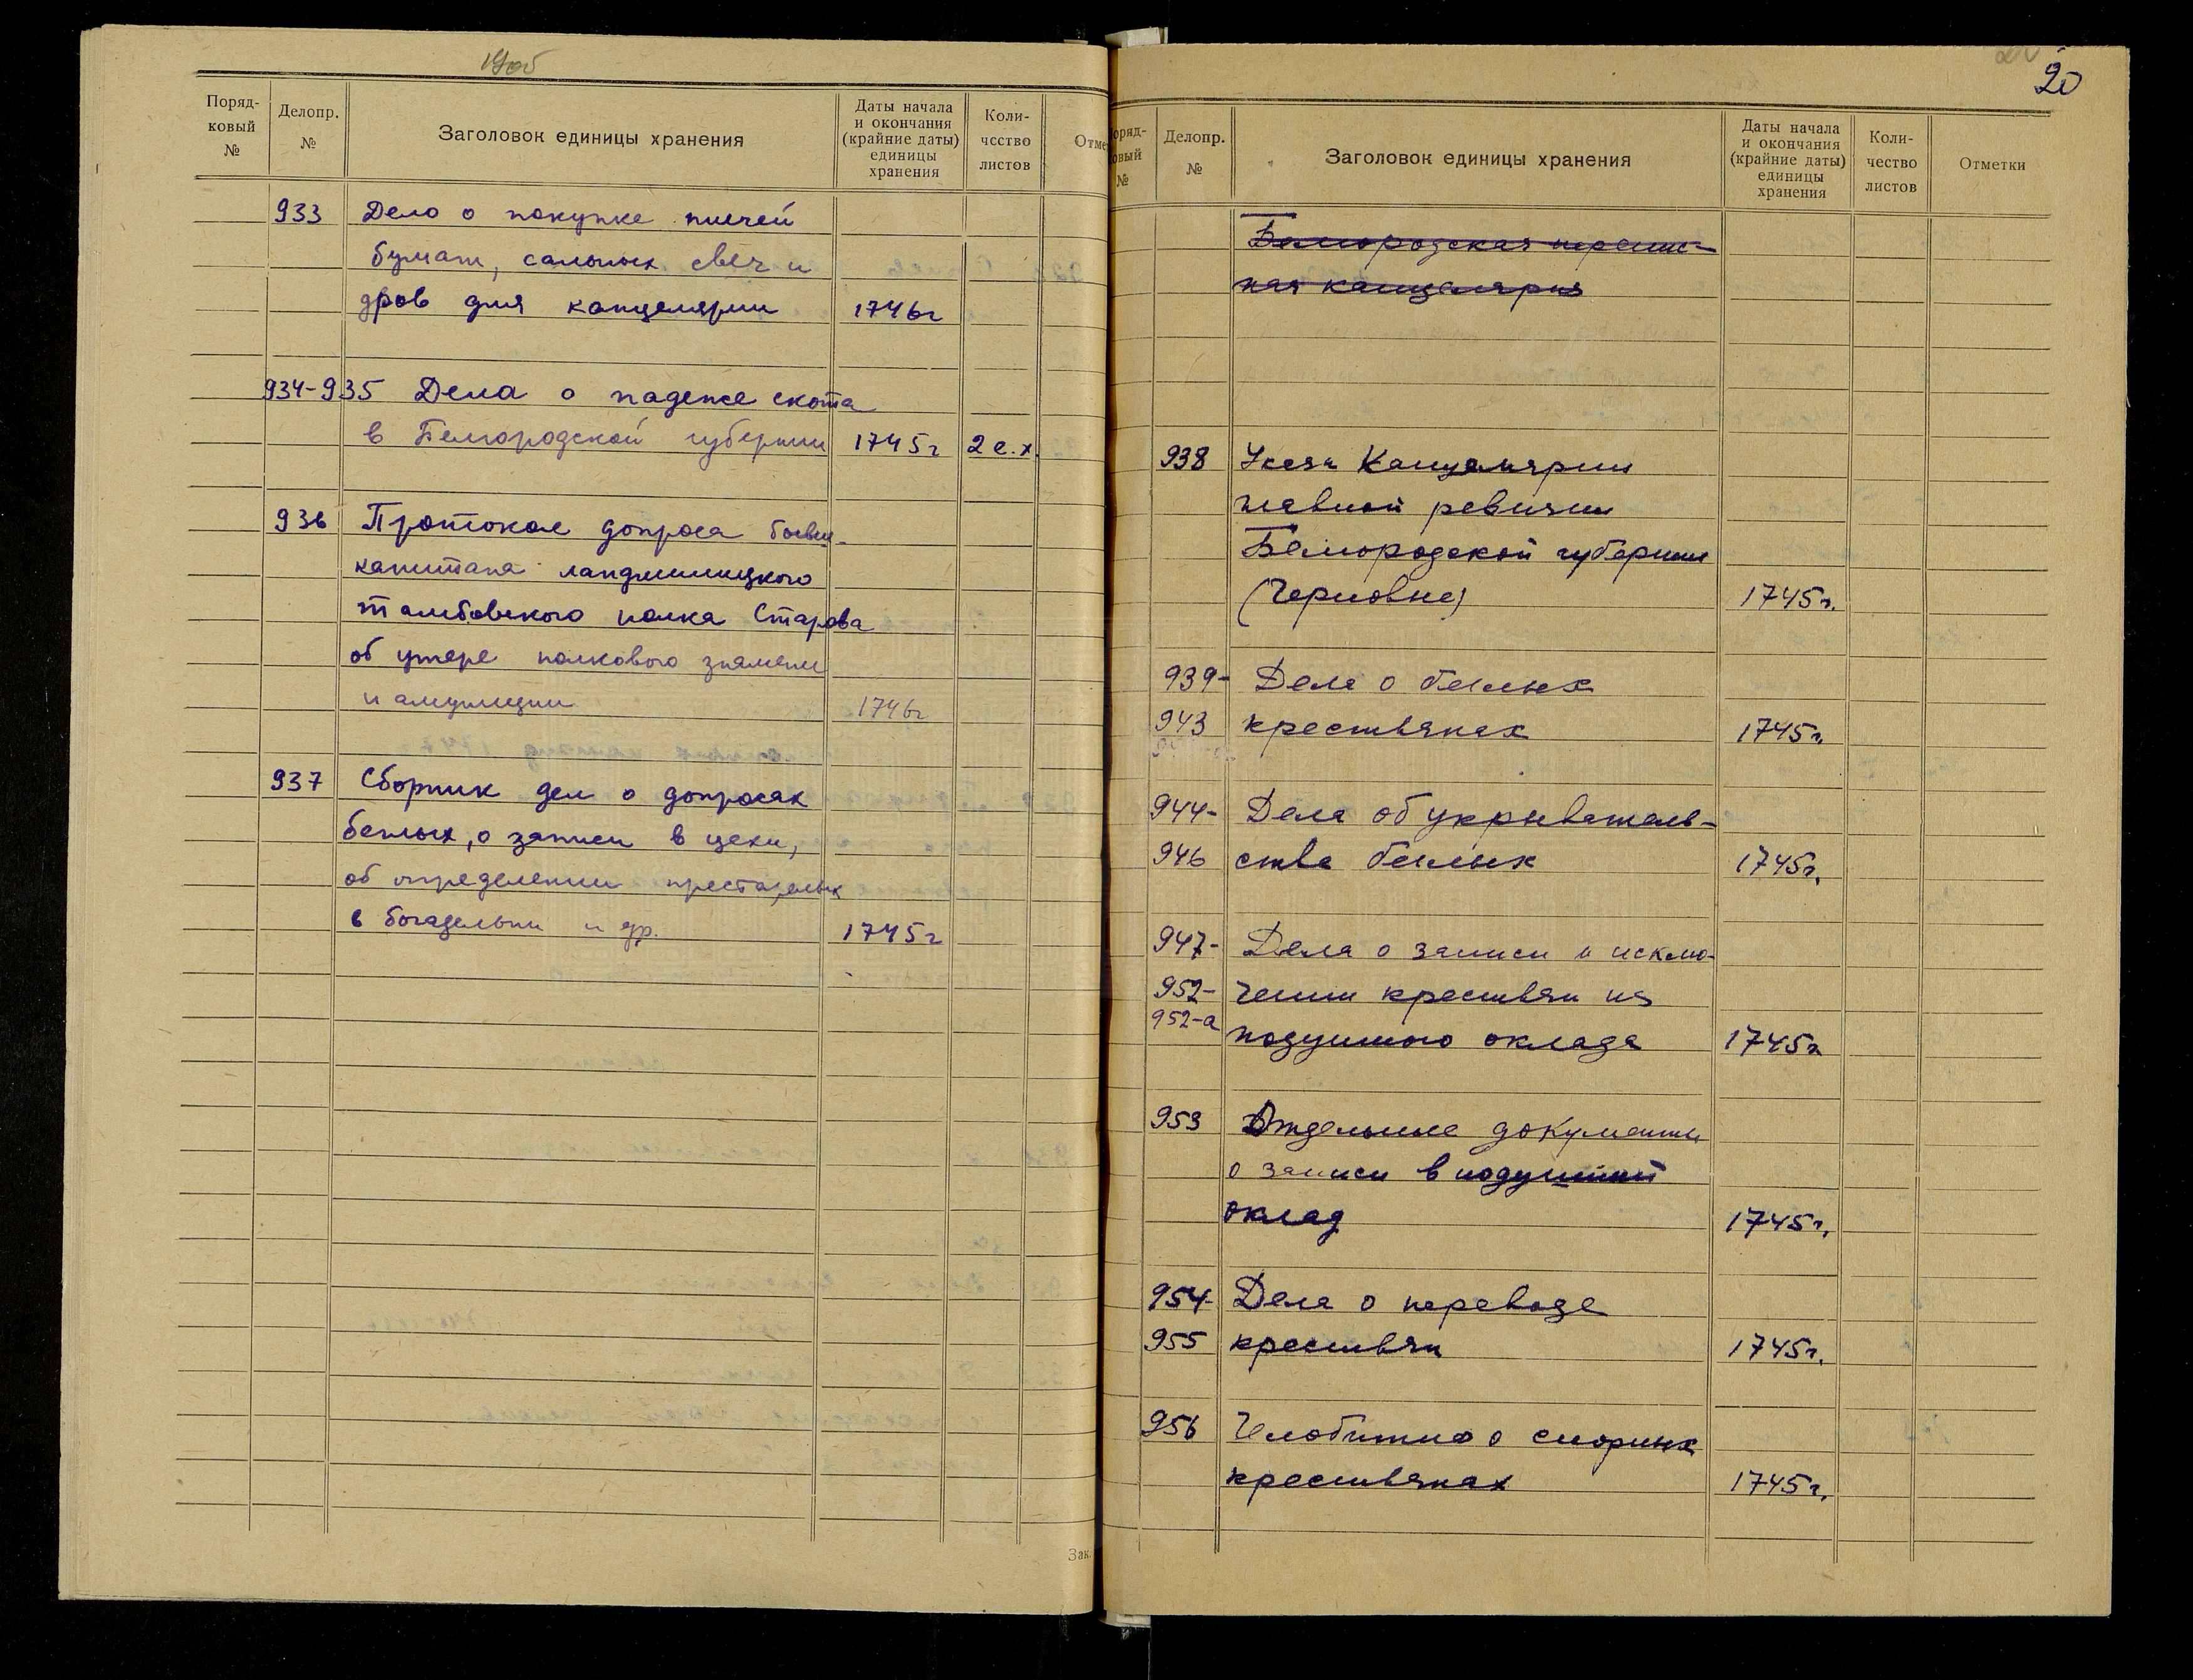 19об
Поряд-
ковый
№
Делопр.
№
Заголовок единицы хранения
Даты начала
и окончания
(крайние даты)
единицы
хранения
Коли-
чество
листов
Отме
933 Дело о покупке писчей
бумаги, сальных свеч и
дров для канцелярии 1746г
934-935 Дела о падеже скота
в Белгородской губернии 1745г 2 е.х.
936 Протокол допроса бывш.
капитана ландмилицкого
тамбовского полка Старова
об утере полкового знамени
и амуниции 1746г
937 Сборник дел о допросах
беглых, о записи в цехи,
об определении престарелых
в богадельни и др. 1745г
Зак.
20
оряд-
овый
№
Делопр.
№
Заголовок единицы хранения
Даты начала
и окончания
(крайние даты)
единицы
хранения
Коли-
чество
листов
Отметки
Белгородская перепис-
ная канцелярия
938 Указы Канцелярии
главной ревизии
Белгородской губернии
(Черновые) 1745г.
939- Дела о беглых
943 крестьянах 1745г.
944- Дела об укрыватель-
946 стве беглых 1745г.
947- Дела о записи и исклю-
952- чении крестьян из
952-а подушного оклада 1745г
953 Отдельные документы
о записи в подушный
оклад 1745г.
954- Дела о переводе
955 крестьян 1745г.
956 Челобитные о спорных
крестьянах 1745г.